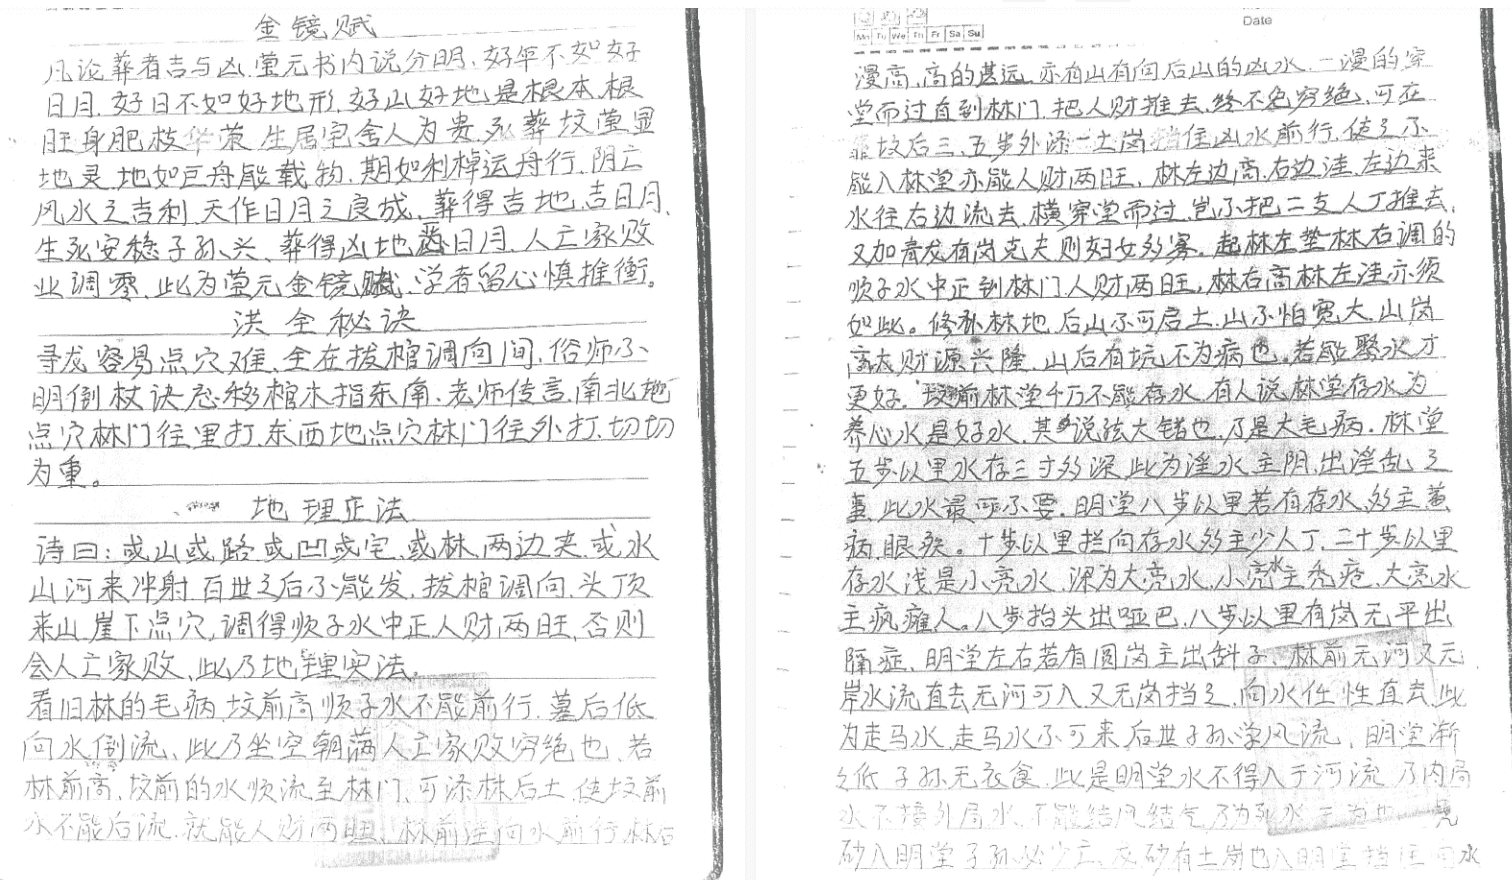 金镜赋
凡论葬者吉与凶.茔元书内说分明.好年不如好
日月.好日不如好地形.好山好地是根本.根
旺身肥枝华荣.生居宅舍人为贵死葬坟茔显
地灵.地如巨舟能载物.期如利棹运舟行.阴亡
风水之吉利.天作日月之良成.葬得吉地.吉日月.
生死安稳子孙兴.葬得凶地凶日月.人亡家败
业调零.此为茔元金镜赋.学者留心慎推衡。
洪全秘诀
寻龙容易点穴难.全在拔棺调向间.俗师不
明倒杖诀.忽移棺木指东南.老师传言.南北地
点穴林门往里打.东西地点穴林门往外打.切切
为重。
地理正法
诗曰：或山或路或凹或宅.或林.两边夹.或水
山河来冲射.百世之后不能发.拔棺调向.头顶
来山.崖下点穴.调得顺子水中正人财两旺.否则
会人亡家败.此乃地理实法.
看旧林的毛病.坟前高顺子水不能前行.墓后低
向水倒流、此乃坐空朝满人亡家败穷绝也.若
林前高.坟前的水顺流至林门.可添林后土.使坟前
水不能后流.就能人财两旺.林前洼向水前行.林后
Date
Mo Tu We Th Fr Sa Su
漫高.高的甚远.亦有山有向后山的凶水.一漫的穿
堂而过直到林门.把人财推去.终不免穷绝.可在
靠坟后三.五步外添一土岗挡住凶水前行.使之不
能入林堂亦能人财两旺.林左边高.右边洼.左边来
水往右边流去.横穿堂而过.岂不把二支人丁推去.
又加青龙有岗克夫则妇女多寡.起林左垫林右调的
顺子水中正到林门.人财两旺.林右高林左洼亦须
如此。修补林地.后山不可启土.山不怕宽大.山岗
高大财源兴隆.山后有坑不为病也.若能聚水才
更好.坟前林堂千万不能存水.有人说林堂存水为
养心水是好水.其说法大错也.乃是大毛病.林堂
五步以里水存三寸多深.此为淫水主阴.出淫乱之
事.此水最可不要.明堂八步以里若有存水.多主黄
病.眼疾。十步以里拦向存水多主少人丁.二十步以里
存水浅是小亮水.深为大亮水.小亮水主秃疮.大亮水
主疯瘫人。八步抬头出哑巴.八步以里有岗无平出
隔症.明堂左右若有圆岗主出斜子.林前无河又无
岸水流直去无河可入又无岗挡之.向水任性直去.此
为走马水.走马水不可来后世子孙学风流.明堂渐
之低子孙无衣食.此是明堂水不得入于河流.乃内局
水不接外局水.不能结风结气乃为死水
砂入明堂子孙必少亡.灰砂有土岗也入明堂挡住向水